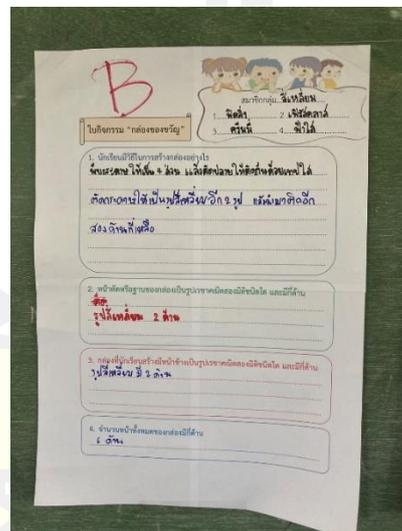 B
สมาชิกกลุ่ม สี่เหลี่ยม
1. 2. เฟิร์สคลาส
3. ครีมมี่ 4. ฟ้าใส
ใบกิจกรรม "กล่องของขวัญ"
1. นักเรียนมีวิธีในการสร้างกล่องอย่างไร
พับกระดาษให้เป็น 4 ส่วน แล้วติดปลายให้ติดกันด้วยเทปใส
ตัดกระดาษให้เป็นรูปสี่เหลี่ยมอีก 2 รูป แล้วนำมาติดอีก
สองด้านที่เหลือ
2. หน้าตัดหรือฐานของกล่องเป็นรูปเรขาคณิตสองมิติชนิดใด และมีกี่ด้าน
รูปสี่เหลี่ยม 2 ด้าน
3. กล่องที่นักเรียนสร้างมีหน้าข้างเป็นรูปเรขาคณิตสองมิติชนิดใด และมีกี่ด้าน
รูปสี่เหลี่ยม มี 2 ด้าน
4. จำนวนหน้าทั้งหมดของกล่องมีกี่ด้าน
6 ด้าน